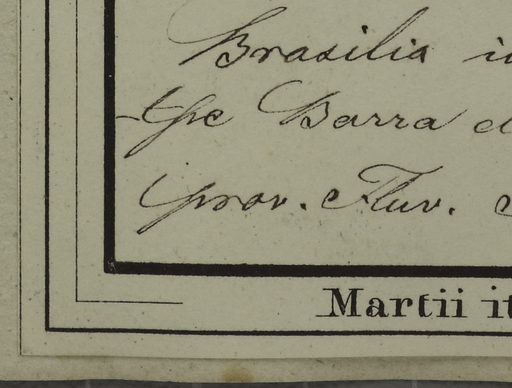 Brasilia i
Barra d
prov. Fluv.
Martii it